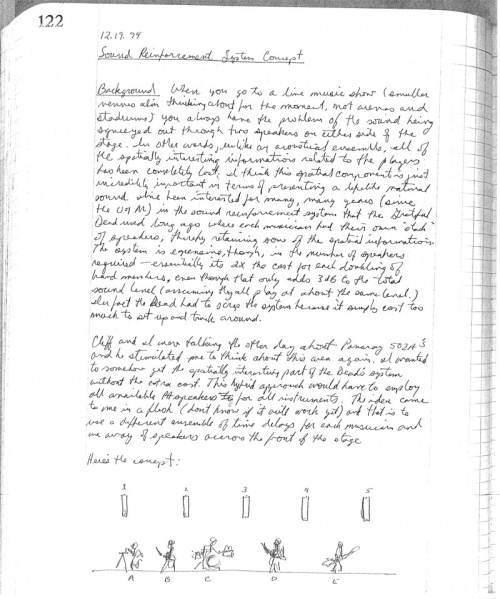 122
12.19.94
Sound Reinforcement System Concept
Background When you go to a live music show (smaller
venues I'm thinking about for the moment, not arenas and
stadiums) you always have the problem of the sound being
squeezed out through two speakers on either side of the
stage. In other words, unlike an acoustical ensemble, all of
the spatially interesting information related to the players
has been completely lost. I think this spatial component is just
incredibly important in terms of presenting a lifelike natural
sound. I've been interested for many, many years (since
the U of AZ) in the sound reinforcement system that the Grateful
Dead used long ago where each musician had their own "stack"
of speakers, thereby retaining some of the spatial information.
The system is expensive, though, in the number of speakers
required — essentially its 2X the cost for each doubling of
band members, even though that only adds 3dB to the total
sound level (assuming they all play at about the same level.)
In fact the Dead had to scrap the system because it simply cost too
much to set up and truck around.
Cliff and I were talking the other day about Panaray 502A's
and he stimulated me to think about this area again. I wanted
to somehow get the spatially interesting part of the Dead's system
without the extra cost. This hybrid approach would have to employ
all available PA speakers for all instruments. The idea came
to me in a flash (don't know if it will work yet) and that is to
use a different ensemble of time delays for each musician and
an array of speakers across the front of the stage
Here's the concept:
1 2 3 4 5
A B C D E